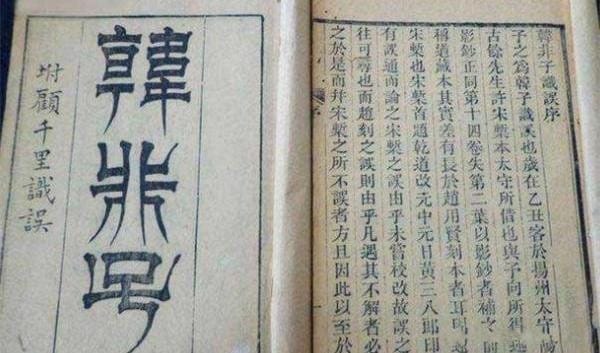 韓非子識誤序
予之爲韓子識誤也歲在乙丑客於揚州太守陽
古餘先生許宋槧本太守所借也與予向所得
影鈔正同第十四卷失第二葉以影鈔者補之前
稱道藏本其實差有長於趙用賢刻本者耳
宋槧也宋槧首題乾道改元中元日黃三八郎印
有誤通而論之宋槧之誤由乎未嘗校改故誤之
往可尋也而趙刻之誤則由乎凡遇其不解者必
之於是而并宋槧之所不誤者方且因此以至於
序
韓非子
坿顧千里識誤